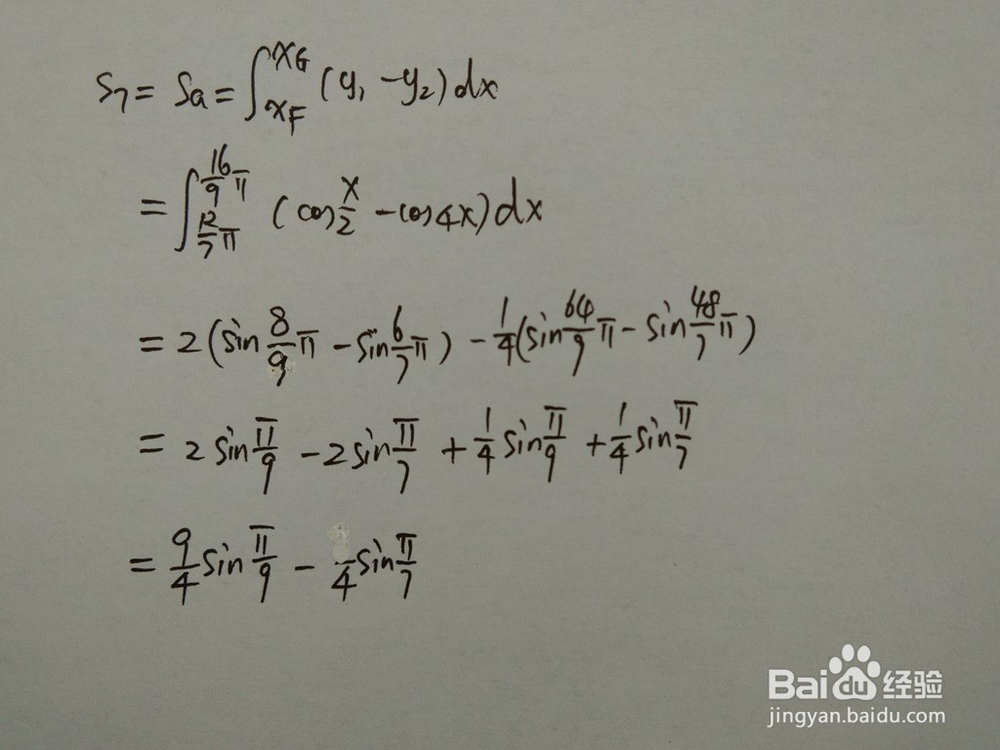 S₇ = Sa = ∫_{x_F}^{x_G} (y₁ - y₂) dx
= ∫_{12/7 π}^{16/9 π} (cos x/2 - cos 4x) dx
= 2 (sin 8/9 π - sin 6/7 π) - 1/4 (sin 64/9 π - sin 48/7 π)
= 2 sin π/9 - 2 sin π/7 + 1/4 sin π/9 + 1/4 sin π/7
= 9/4 sin π/9 - /4 sin π/7
Baidu 经验
jingyan.baidu.com